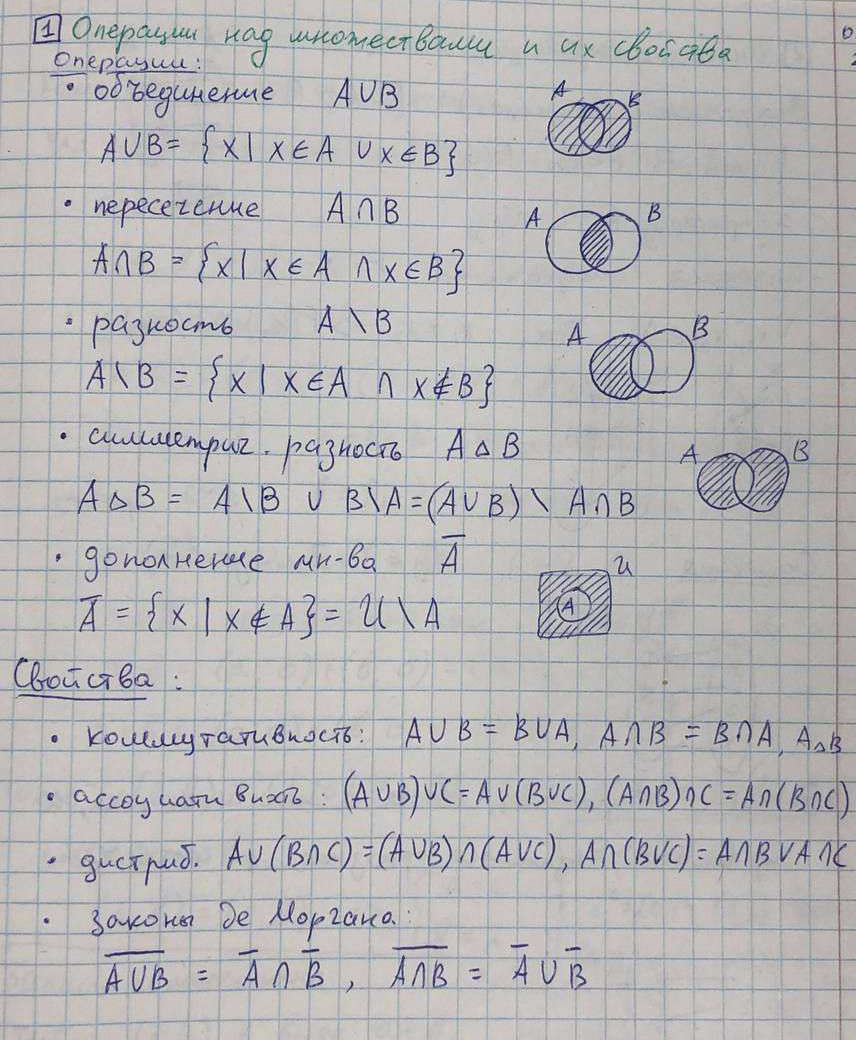 1 Операции над множествами и их свойства
Операции:
• объединение A∪B
A B
A∪B = {x | x∈A ∪ x∈B}
• пересечение A∩B
A B
A∩B = {x | x∈A ∩ x∈B}
• разность A \ B
A B
A \ B = {x | x∈A ∩ x∉B}
• симметрич. разность A △ B
A B
A △ B = A\B ∪ B\A = (A∪B) \ A∩B
• дополнение мн-ва A̅
U
A
A̅ = {x | x∉A} = U \ A
Свойства:
• коммутативность: A∪B = B∪A, A∩B = B∩A, A△B
• ассоциативность: (A∪B)∪C = A∪(B∪C), (A∩B)∩C = A∩(B∩C)
• дистриб. A∪(B∩C) = (A∪B)∩(A∪C), A∩(B∪C) = A∩B∪A∩C
• законы де Моргана:
A̅∪̅B̅ = A̅ ∩ B̅, A̅∩̅B̅ = A̅ ∪ B̅